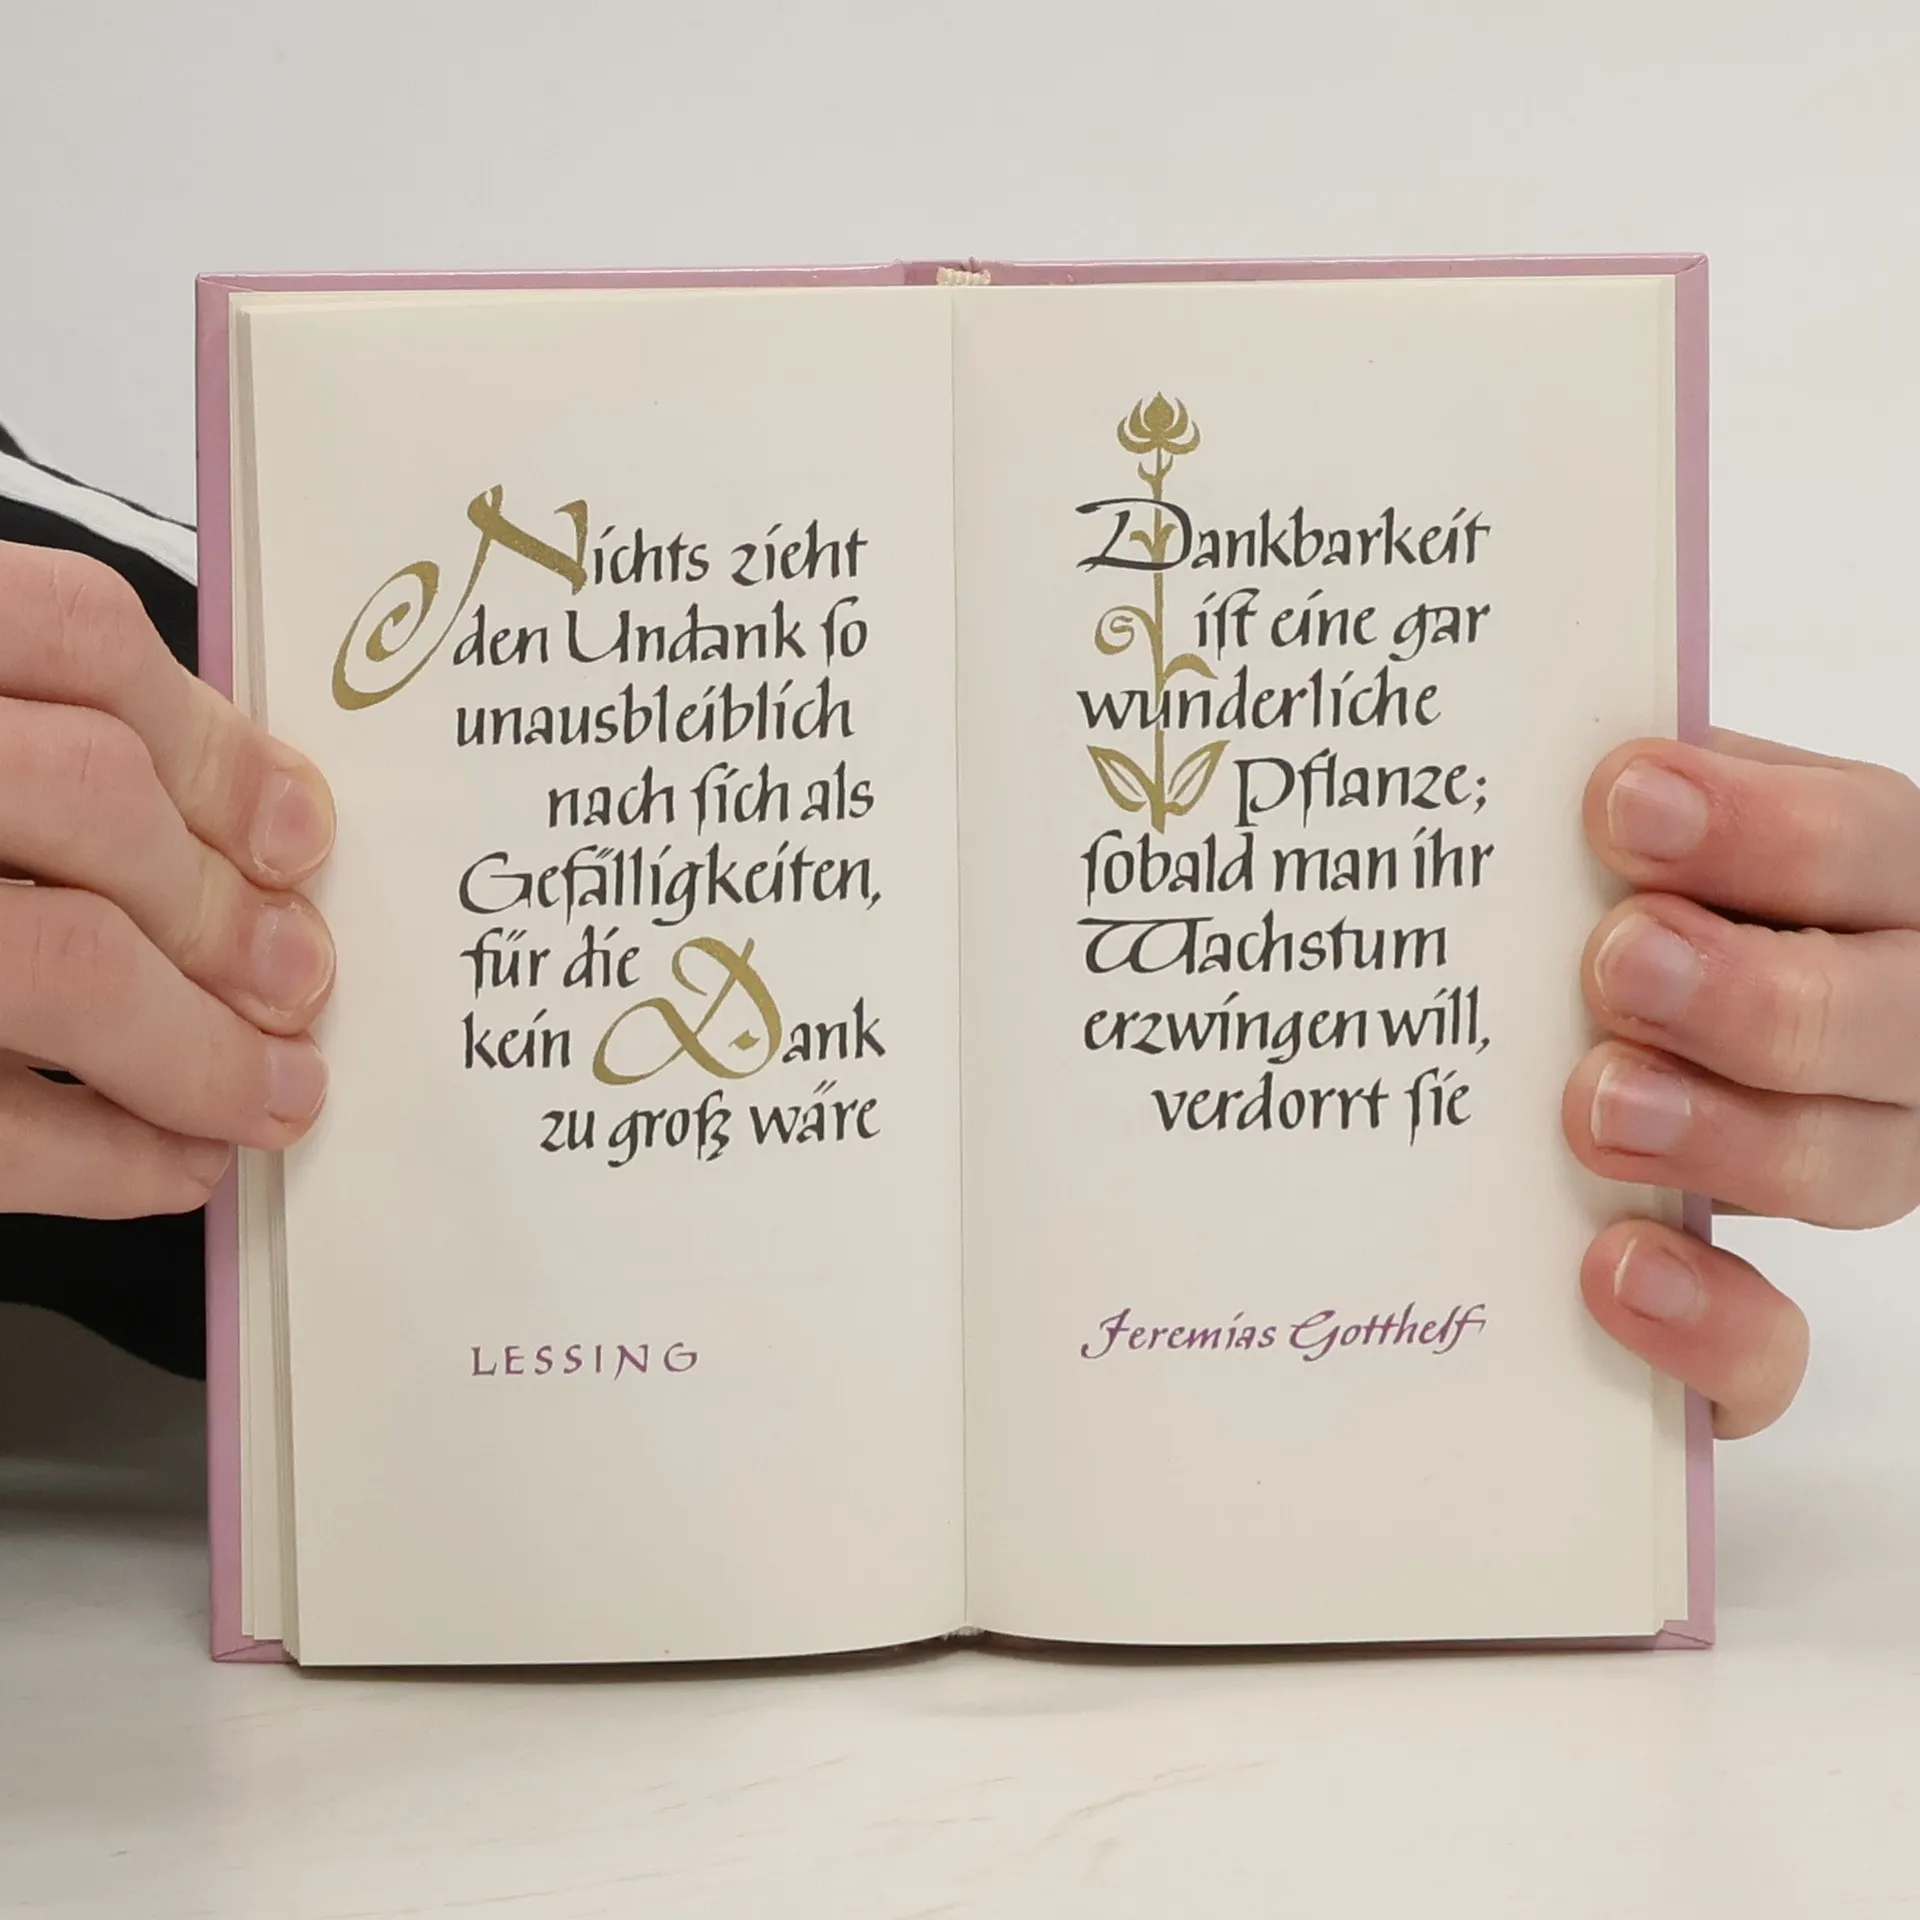 Nichts zieht
den Undank ſo
unausbleiblich
nach ſich als
Gefälligkeiten,
für die
kein Dank
zu groß wäre
LESSING
Dankbarkeit
iſt eine gar
wunderliche
Pflanze;
ſobald man ihr
Wachstum
erzwingen will,
verdorrt ſie
Jeremias Gotthelf